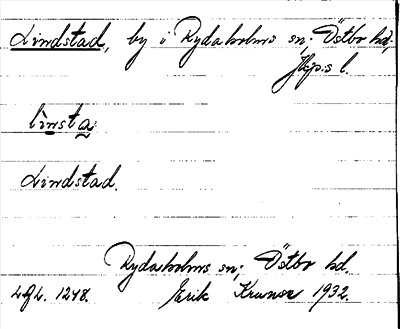 Lindstad, by i Rydaholms sn; Östbo hd,
Jkp:s l.
lìnsta
Lindstad.
Rydaholms sn; Östbo hd.
L.G.L. 1248. Erik Kruuse 1932.